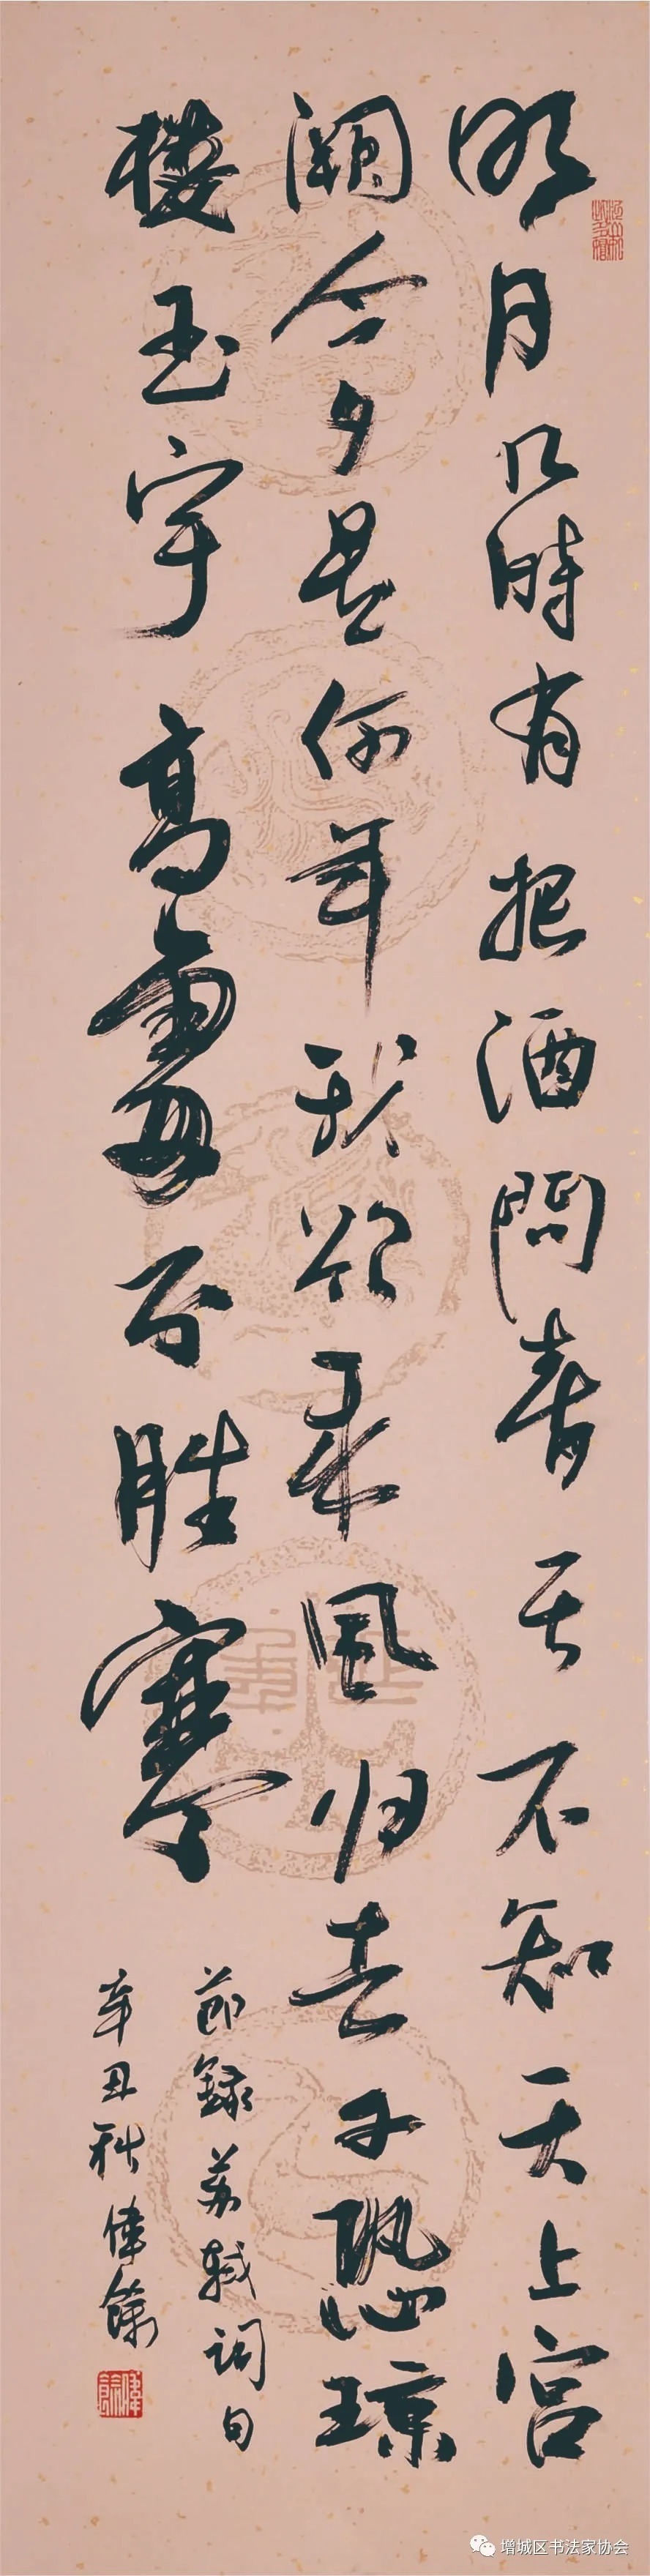 明月几時有把酒問青天不知天上宫
闕今夕是何年我欲乘風归去又恐琼
樓玉宇高處不胜寒
節録苏軾词句
辛丑秋偉
增城区书法家协会